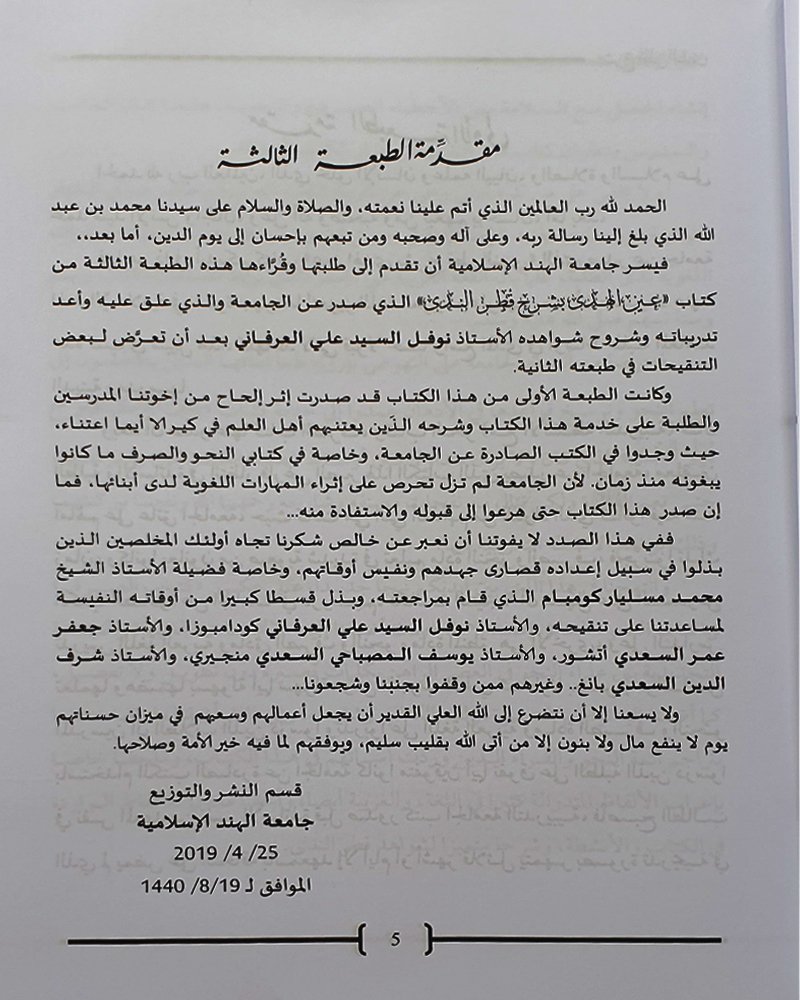 مقدِّمة الطبعة الثالثة
الحمد لله رب العالمين الذي أتم علينا نعمته، والصلاة والسلام على سيدنا محمد بن عبد
الله الذي بلغ إلينا رسالة ربه، وعلى آله وصحبه ومن تبعهم بإحسان إلى يوم الدين، أما بعد،،
فيسر جامعة الهند الإسلامية أن تقدم إلى طلبتها وقُرَّاءها هذه الطبعة الثالثة من
كتاب «عين الهدى بشرح قطر الندى» الذي صدر عن الجامعة والذي علق عليه وأعد
تدريباته وشروح شواهده الأستاذ نوفل السيد علي العرفاني بعد أن تعرَّض لبعض
التنقيحات في طبعته الثانية.
وكانت الطبعة الأولى من هذا الكتاب قد صدرت إثر إلحاح من إخوتنا المدرسين
والطلبة على خدمة هذا الكتاب وشرحه الذَين يعتنيهم أهل العلم في كيرالا أيما اعتناء،
حيث وجدوا في الكتب الصادرة عن الجامعة، وخاصة في كتابي النحو والصرف ما كانوا
يبغونه منذ زمان. لأن الجامعة لم تزل تحرص على إثراء المهارات اللغوية لدى أبنائها، فما
إن صدر هذا الكتاب حتى هرعوا إلى قبوله والاستفادة منه...
ففي هذا الصدد لا يفوتنا أن نعبر عن خالص شكرنا تجاه أولئك المخلصين الذين
بذلوا في سبيل إعداده قصارى جهدهم ونفيس أوقاتهم، وخاصة فضيلة الأستاذ الشيخ
محمد مسليار كومبام الذي قام بمراجعته، وبذل قسطا كبيرا من أوقاته النفيسة
لمساعدتنا على تنقيحه، والأستاذ نوفل السيد علي العرفاني كودامبوزا، والأستاذ جعفر
عمر السعدي أتشور، والأستاذ يوسف المصباحي السعدي منجيري، والأستاذ شرف
الدين السعدي بانغ.. وغيرهم ممن وقفوا بجنبنا وشجعونا...
ولا يسعنا إلا أن نتضرع إلى الله العلي القدير أن يجعل أعمالهم وسعيهم في ميزان حسناتهم
يوم لا ينفع مال ولا بنون إلا من أتى الله بقليب سليم، ويوفقهم لما فيه خير الأمة وصلاحها.
قسم النشر والتوزيع
جامعة الهند الإسلامية
25/ 4/ 2019
الموافق لـ 19/8/ 1440
5